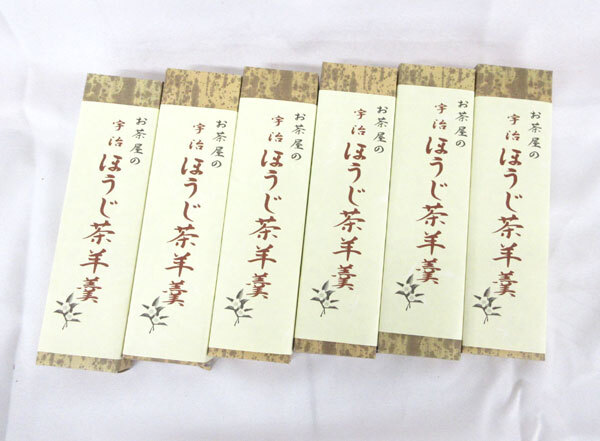 お茶屋の
宇治
ほうじ茶羊羹
お茶屋の
宇治
ほうじ茶羊羹
お茶屋の
宇治
ほうじ茶羊羹
お茶屋の
宇治
ほうじ茶羊羹
お茶屋の
宇治
ほうじ茶羊羹
お茶屋の
宇治
ほうじ茶羊羹